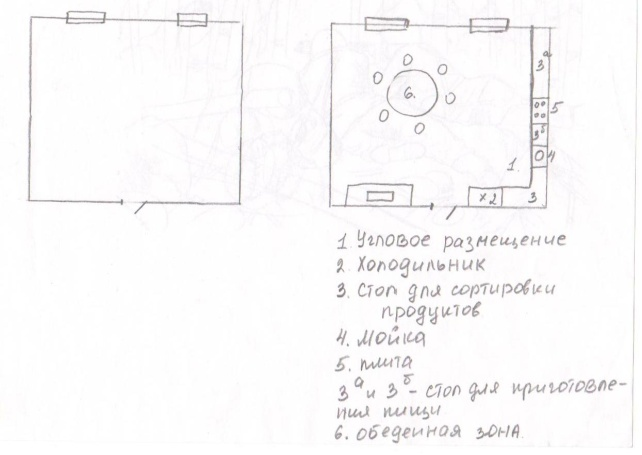 3а
6.
5
3б
1.
4
х2
3
1 Угловое размещение
2 Холодильник
3. Стол для сортировки
продуктов
4. Мойка
5. плита
3а и 3б - стол для приготовле-
ния пищи
6. обеденная зона.